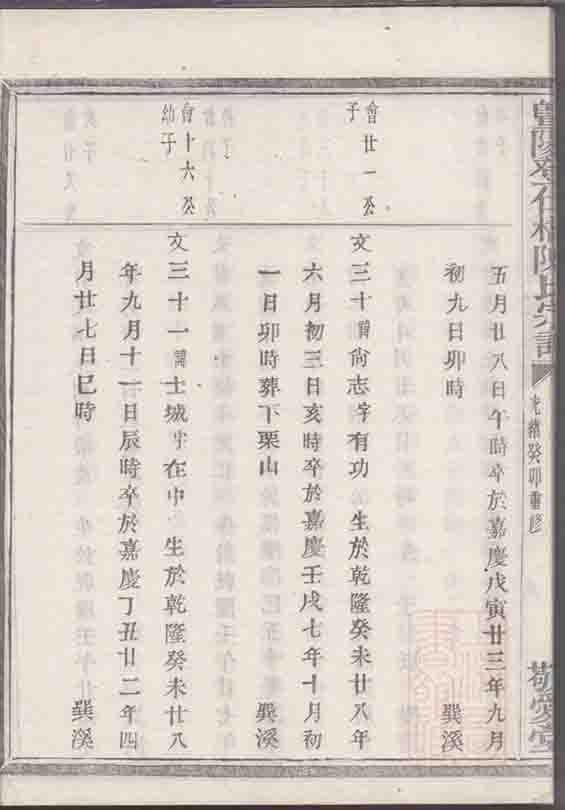 暨陽
石橋陳氏宗譜
光緒癸卯重修
敬愛堂
五月廿八日午時卒於嘉慶戊寅廿三年九月
初九日卯時 巽溪
會廿一公
子
文三十諱尚志字有功 生於乾隆癸未廿八年
六月初三日亥時卒於嘉慶壬戌七年十月初
一日卯時葬下栗山 巽溪
會十六公
幼子
文三十一諱士城字在中 生於乾隆癸未廿八
年九月十一日辰時卒於嘉慶丁丑廿二年四
月廿七日巳時 巽溪